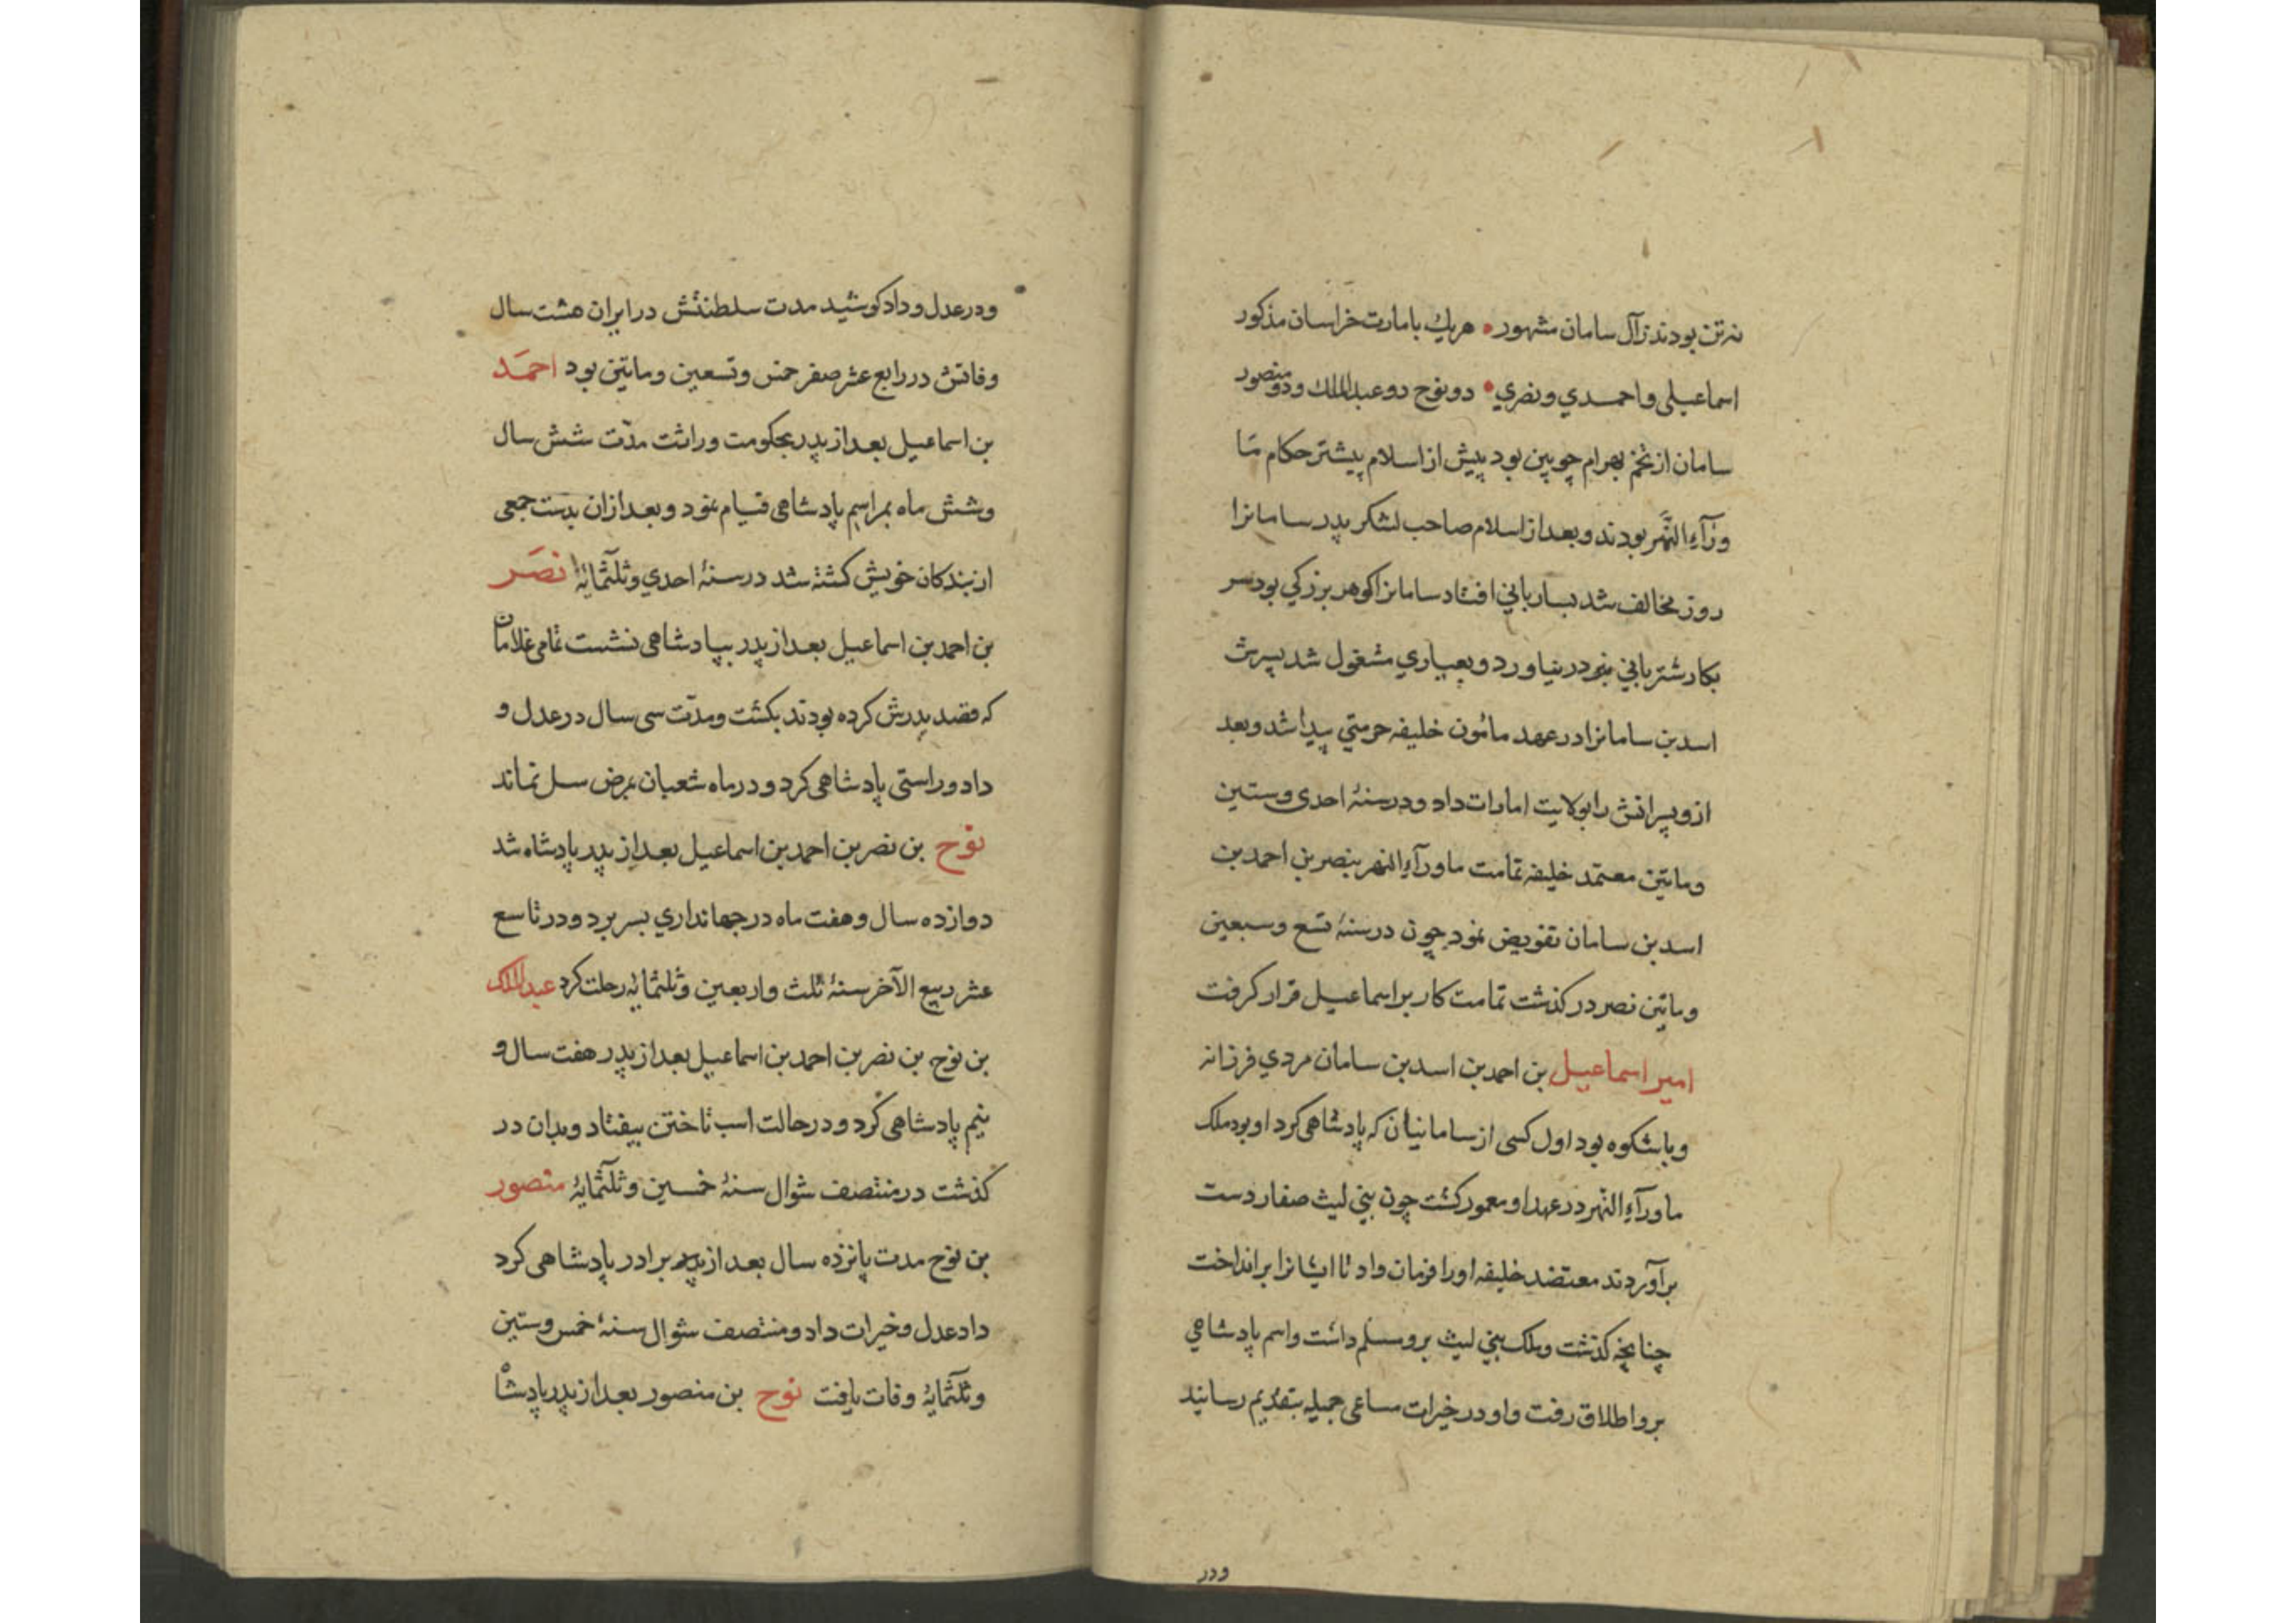 نه تن بودند زآل سامان مشهور هريك بامارت خراسان مذكور
اسماعيلى واحمدي ونصري دو نوح دو عبدالملك ودو منصور
سامان از تخم بهرام چوبين بود پيش از اسلام پيشتر حكام ما
ورآء النهر بودند وبعد از اسلام صاحب لشكر پدر سامانرا
روز مخالف شد بساربانى افتاد سامانرا كوهر بزركي بود سر
بكار شتربانى نيودر نياورد وبعيارى مشغول شد پسرش
اسد بن سامانرا در عهد مأمون خليفه حرمتي پيدا شد وبعد
ازو پسرانش را بولايت امارات داد ودر سنۀ احدى وستين
ومايتين معتمد خليفه تمامت ماورآء النهر بنصر بن احمد بن
اسد بن سامان تفويض نمود چون در سنۀ تسع وسبعين
ومايتن نصر در كذشت تمامت كار بر اسماعيل قرار كرفت
امير اسماعيل بن احمد بن اسد بن سامان مردي فرزانه
وباشكوه بود اول كسى از سامانيان كه پادشاهى كرد او بود ملك
ماورآء النهر در عهد او معمور كشت چون بني ليث صفار دست
برآوردند معتضد خليفه اورا فرمان داد تا ايشانرا برانداخت
چنانچه كذشت وملك بني ليث برو مسلم داشت واسم پادشاهي
برو اطلاق رفت واو در خيرات مساعى جميله بتقديم رسانيد
ودر
ودر عدل وداد كوشيد مدت سلطنتش در ايران هشت سال
وفاتش در رابع عشر صفر خمس وتسعين ومايتين بود احمد
بن اسماعيل بعد از پدر بحكومت وراثت مدّت شش سال
وشش ماه بمراسم پادشاهى قيام نمود وبعد ازان بدست جمعى
از بندكان خويش كشته شد در سنۀ احدي وثلثمايۀ نصر
بن احمد بن اسماعيل بعد از پدر بپادشاهى نشست تمامى غلامان
كه قصد پدرش كرده بودند بكشت ومدّت سى سال در عدل و
داد وراستى پادشاهى كرد ودر ماه شعبان بمرض سل نماند
نوح بن نصر بن احمد بن اسماعيل بعد از پدر پادشاه شد
دوازده سال وهفت ماه در جهانداري بسر برد ودر تاسع
عشر ربيع الآخر سنۀ ثلث واربعين وثلثمايه رحلت كرد عبدالملك
بن نوح بن نصر بن احمد بن اسماعيل بعد از پدر هفت سال و
نيم پادشاهى كرد ودر حالت اسب تاختن بيفتاد وبدان در
كذشت در منتصف شوال سنۀ خمسين وثلثمايۀ منصور
بن نوح مدت پانزده سال بعد از برادر پادشاهى كرد
داد عدل وخيرات داد ومنتصف شوال سنۀ خمس وستين
وثلثمايۀ وفات يافت نوح بن منصور بعد از پدر پادشاه